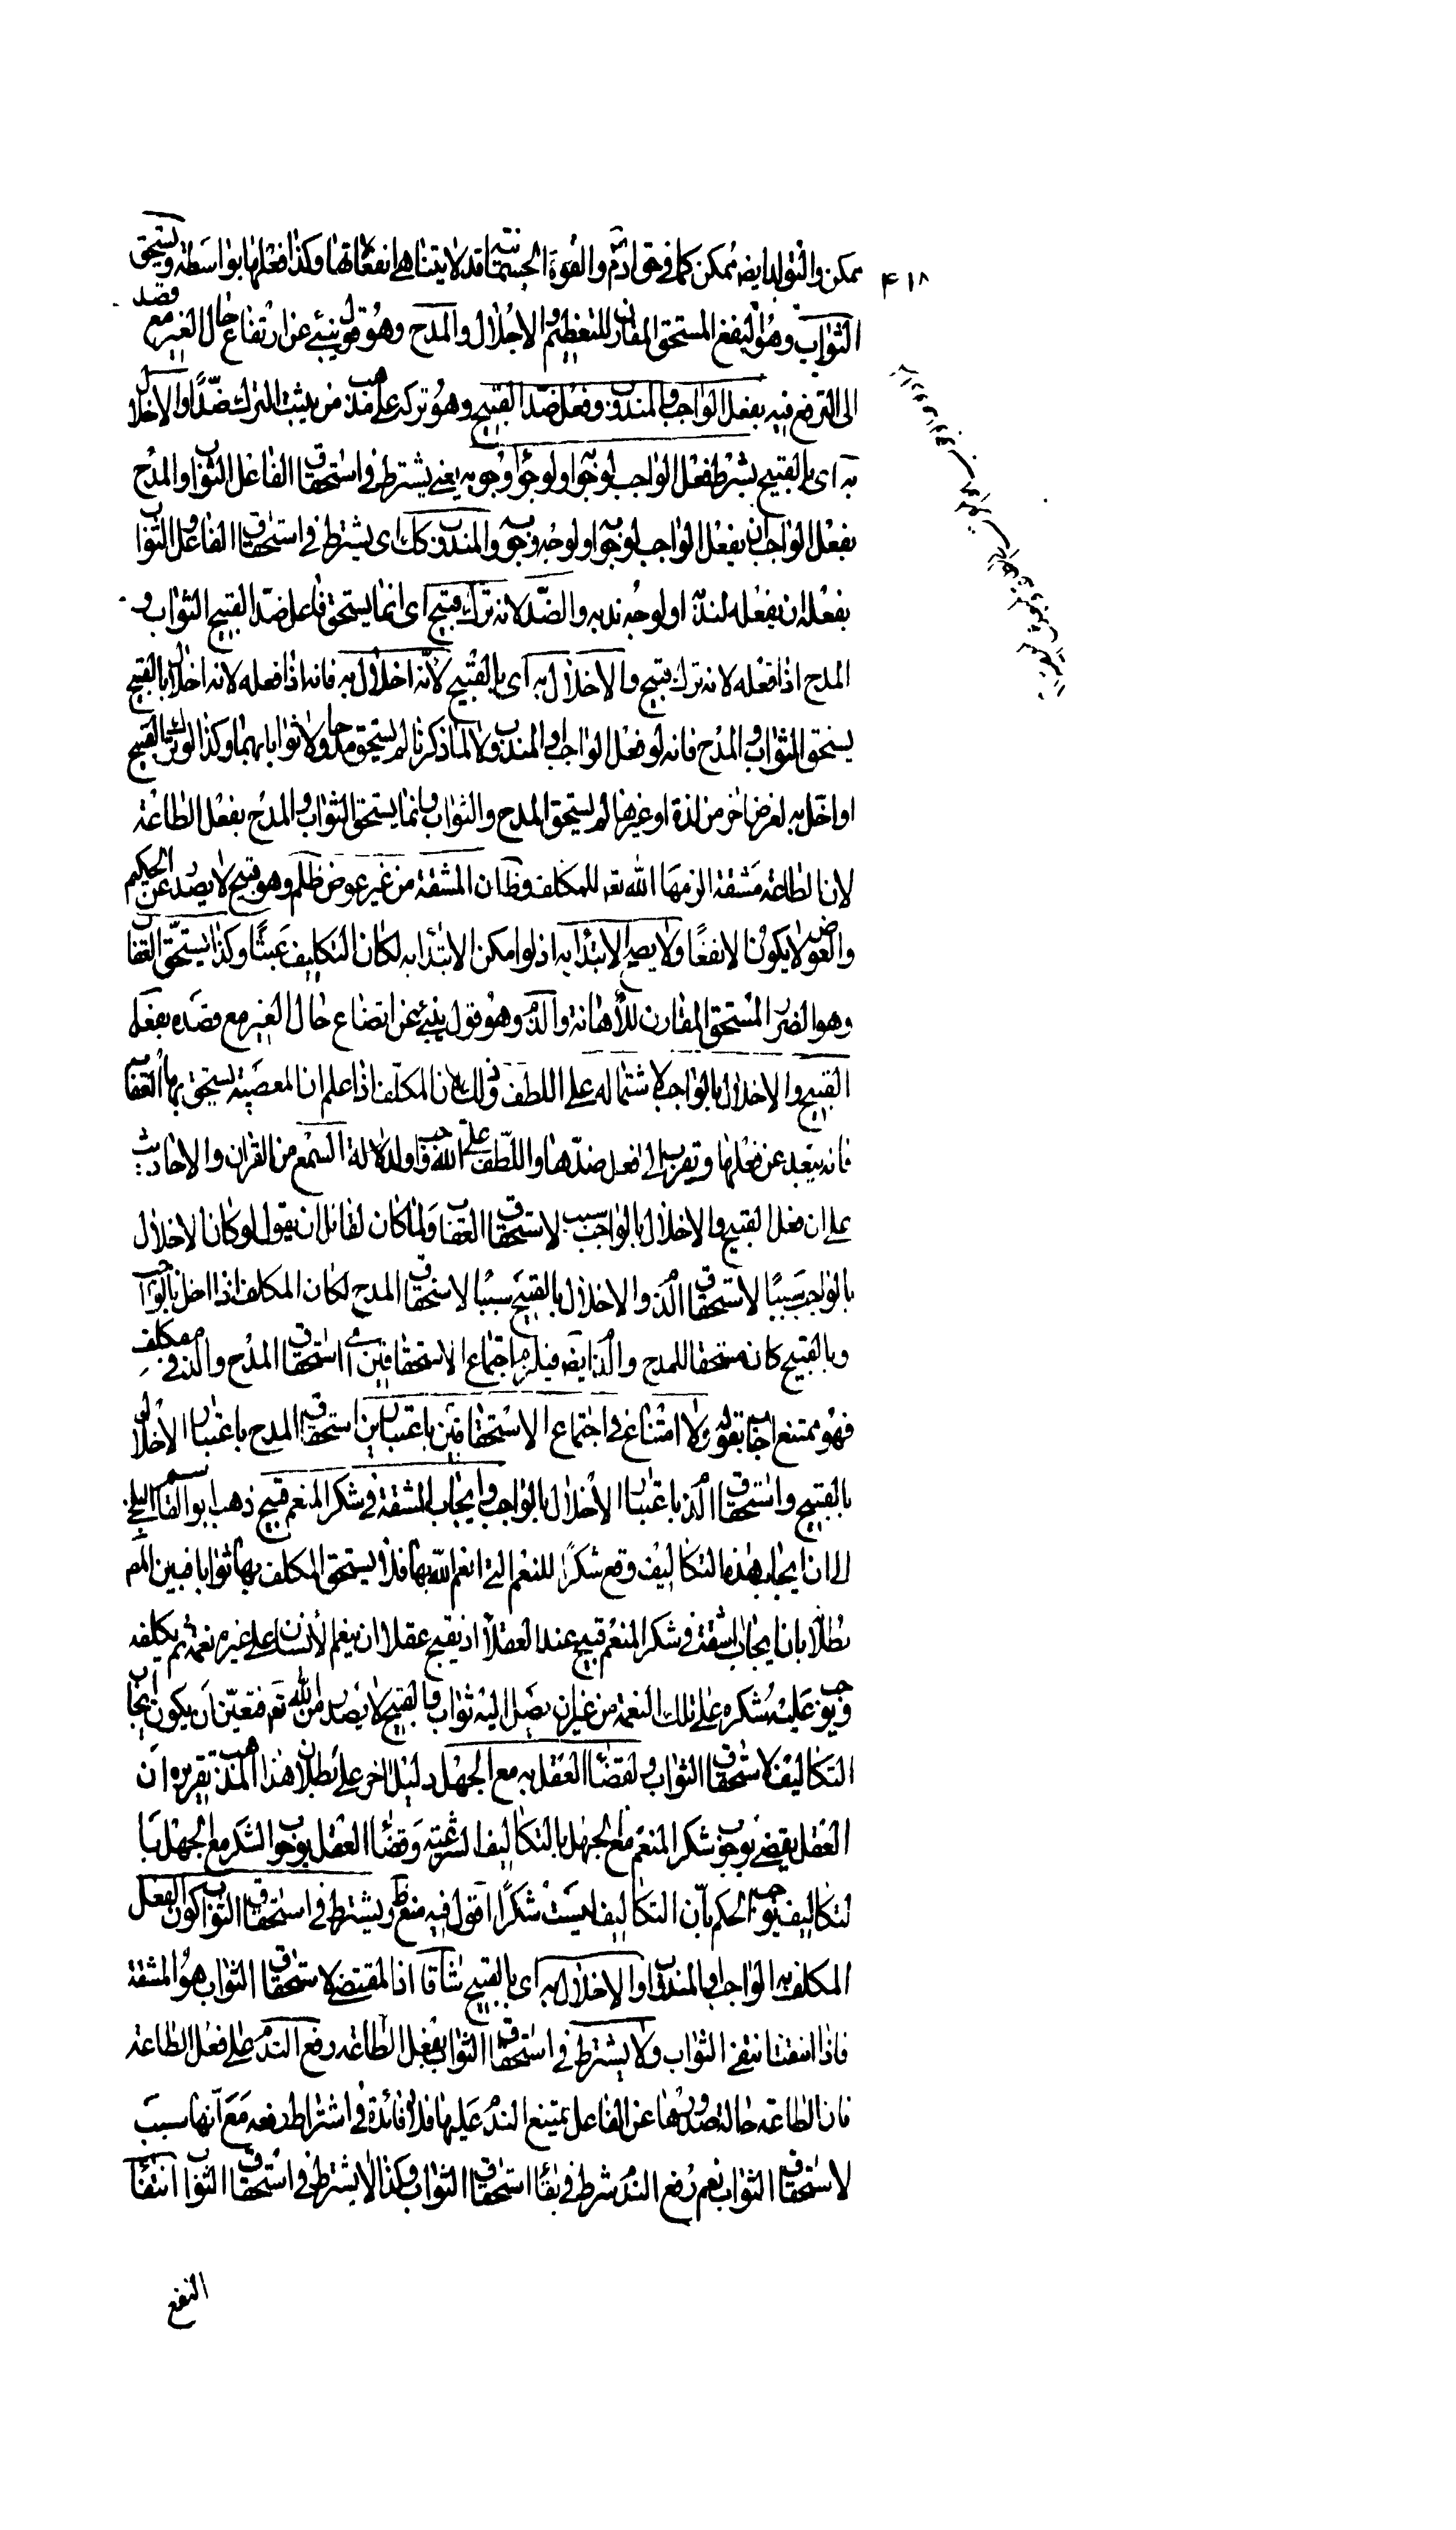 ۴۱۸
ممكن والتولد ايضه ممكن كما في حق ادمؑ والقوة الجسمانية قد لا يتناهى انفعالاتها وكذا فعلها بواسطة ويستحق
الثواب وهو النفع المستحق المقارن للتعظيم والاجلال والمدح وهو قول ينبئ عن ارتفاع حال الغير مع قصد
الى الترفع فيه بفعل الواجب والمندوب وفعل ضد القبيح وهو تركه على مذهب من يثبت الترك ضدًّا والاخلال
به اى بالقبيح بشرط فعل الواجب لوجوبه او لوجه وجوبه يعنى يشترط في استحقاق الفاعل الثواب والمدح
بفعل الواجب ان يفعل الواجب لوجوبه او لوجه وجوبه والمندوب كك اى يشترط في استحقاق الفاعل الثواب
بفعله ان يفعله لندبه او لوجه ندبه والضد لانه ترك قبيح اى انما يستحق فاعل ضد القبيح الثواب و
المدح اذا فعله لانه ترك قبيح والاخلال به اى بالقبيح لانه اخلال به فانه اذا فعله لانه اخلال بالقبيح
يستحق الثواب والمدح فانه لو فعل الواجب او المندوب لا لما ذكرنا لم يستحق مدحا ولا ثوابا بهما وكذا لو ترك القبيح
او اخل به لغرض اخر من لذة او غيرها لم يستحق المدح والثواب وانما يستحق الثواب والمدح بفعل الطاعة
لان الطاعة مشقة الزمها الله تعه للمكلف وظ ان المشقة من غير عوض ظلم وهو قبيح لا يصدر عن الحكيم
والعوض لا يكون الا نفعًا ولا يصح الابتداء به اذ لو امكن الابتداء به لكان التكليف عبثًا وكذا يستحق العقاب
وهو الضرر المستحق المقارن للاهانة والذم وهو قول ينبئ عن اتضاع حال الغير مع قصده بفعل
القبيح والاخلال بالواجب لاشتماله على اللطف وذلك لان المكلف اذا علم ان المعصية يستحق بها العقاب
فانه يبعد عن فعلها ويقرب الى فعل ضدها واللطف على الله واجب ولدلالة السمع من القران والاحاديث
على ان فعل القبيح والاخلال بالواجب سبب لاستحقاق العقاب ولما كان لقائل ان يقول لو كان الاخلال
بالواجب سببًا لاستحقاق الذم والاخلال بالقبيح سببًا لاستحقاق المدح لكان المكلف اذا اخل بالواجب
وبالقبيح كان مستحقا للمدح والذم ايضه فيلزم اجتماع الاستحقاقين اى استحقاق المدح والذم في مكلف
فهو ممتنع اجاب بقوله ولا امتناع في اجتماع الاستحقاقين باعتبارين استحقاق المدح باعتبار الاخلال
بالقبيح واستحقاق الذم باعتبار الاخلال بالواجب وايجاب المشقة في شكر المنعم قبيح ذهب ابو القاسم البلخى
الى ان ايجاب هذه التكاليف وقع شكرًا للنعم التى انعم الله بها فلا يستحق المكلف بها ثوابا فبين المصه
بطلانه بان ايجاب المشقة في شكر المنعم قبيح عند العقلاء اذ يقبح عقلا ان ينعم الانسان على غيره نعمة ثم يكلفه
ويوجب عليه شكره على تلك النعمة من غير ان يصل اليه ثواب والقبيح لا يصدر من الله تعه فتعين ان يكون ايجاب
التكاليف لاستحقاق الثواب ولقضاء العقل به مع الجهل دليل اخر على بطلان هذا المذهب تقريره ان
العقل يقضى بوجوب شكر المنعم مع الجهل بالتكاليف الشرعية وقضاء العقل بوجوب الشكر مع الجهل با
لتكاليف يوجب الحكم بان التكاليف ليست شكرًا اقول فيه منع ظ ويشترط في استحقاق الثواب كون الفعل
المكلف به الواجب او المندوب او الاخلال به اى بالقبيح شاقا اذ المقتضى لاستحقاق الثواب هو المشقة
فاذا انتفت انتفى الثواب ولا يشترط في استحقاق الثواب بفعل الطاعة رفع الندم على فعل الطاعة
فان الطاعة حالة صدورها عن الفاعل يمتنع الندم عليها فلا فائدة في اشتراط رفعه مع انها سبب
لاستحقاق الثواب نعم رفع الندم شرط في بقاء استحقاق الثواب وكذا لا يشترط في استحقاق الثواب انتفاء
النفع